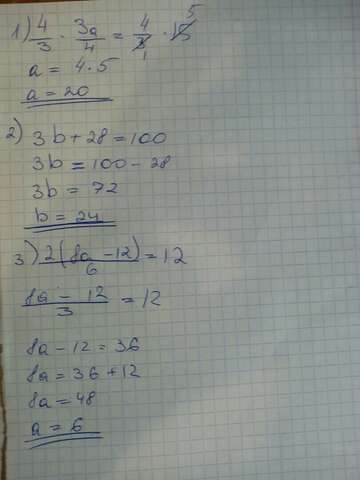 1) 4/3 · 3a/4 = 4/3 · 15 5
1
a = 4·5
a = 20
2) 3b + 28 = 100
3b = 100 - 28
3b = 72
b = 24
3) 2(8a - 12)/6 = 12
8a - 12/3 = 12
8a - 12 = 36
8a = 36 + 12
8a = 48
a = 6